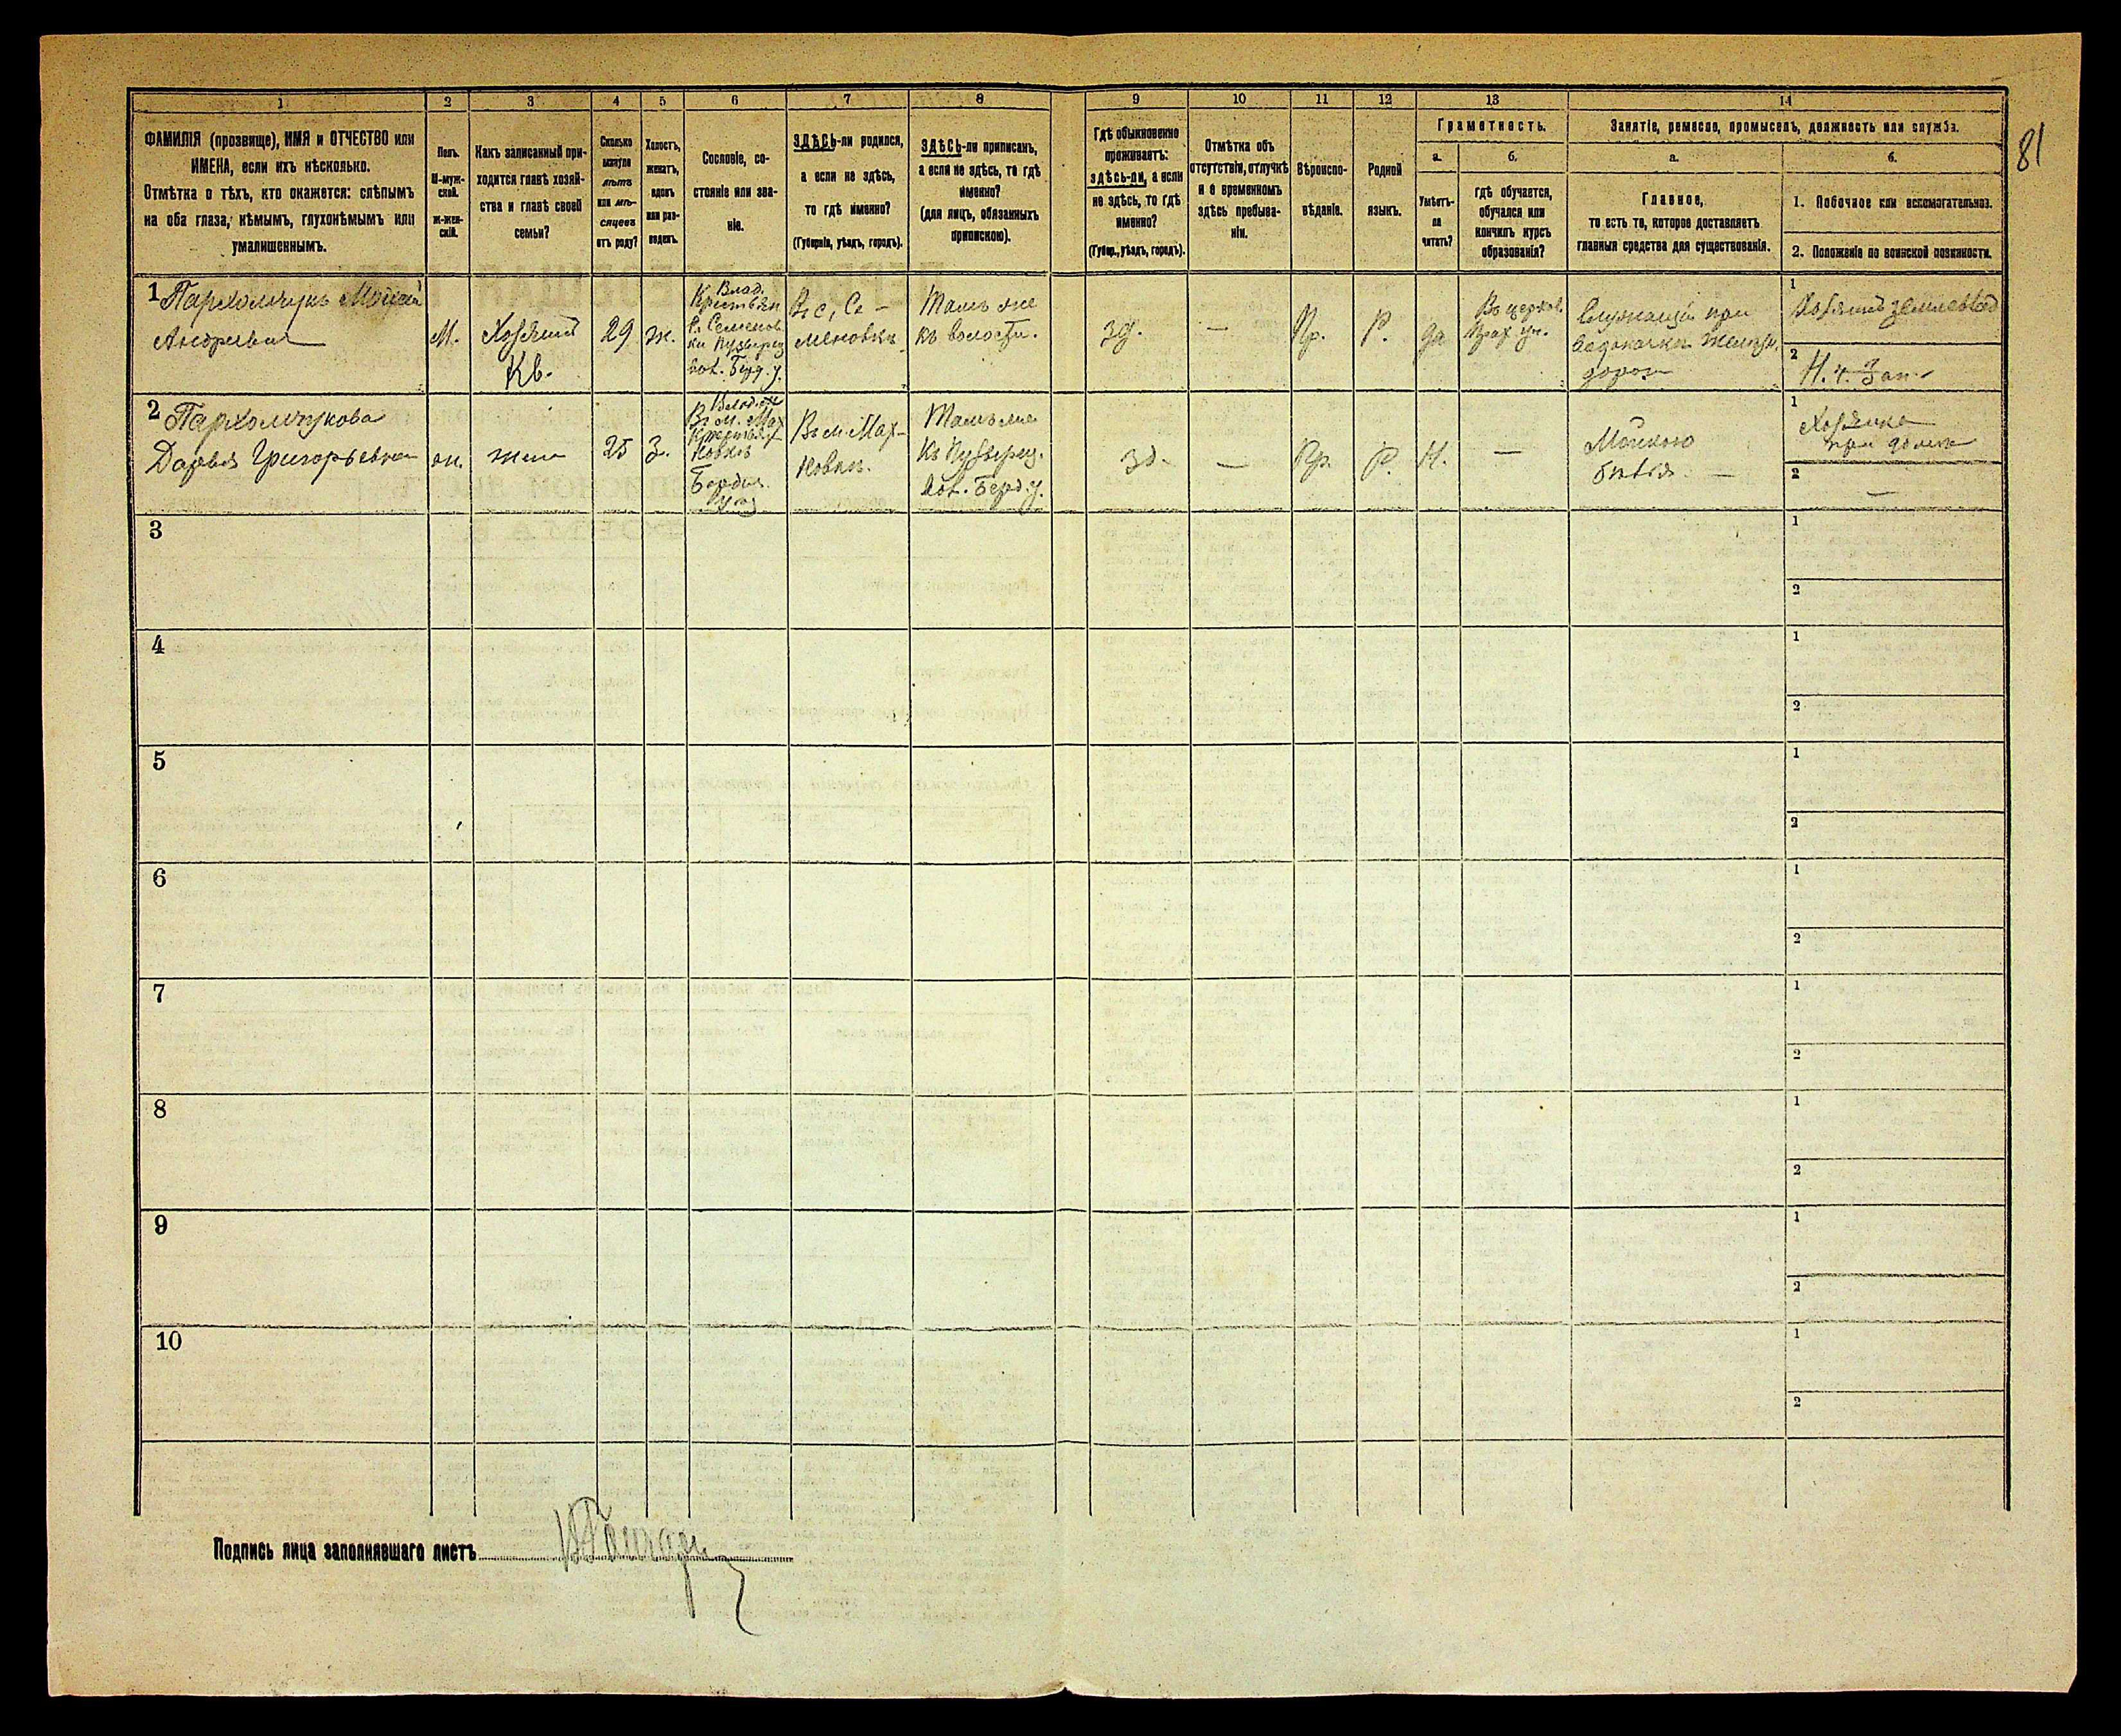 1 2 3 4 5 6 7 8 9 10 11 12 13 14
81
ФАМИЛІЯ (прозвище), ИМЯ и ОТЧЕСТВО или
ИМЕНА, если ихъ нѣсколько.
Отмѣтка о тѣхъ, кто окажется: слѣпымъ
на оба глаза, нѣмымъ, глухонѣмымъ или
умалишеннымъ.
Полъ.
М-муж-
ской.
Ж-жен-
скій.
Какъ записанный при-
ходится главѣ хозяй-
ства и главѣ своей
семьи?
Сколько
минуло
лѣтъ
или мѣ-
сяцевъ
отъ роду?
Холостъ,
женатъ,
вдовъ
или раз-
веденъ.
Сословіе, со-
стояніе или зва-
ніе.
ЗДѢСЬ-ли родился,
а если не здѣсь,
то гдѣ именно?
(Губернія, уѣздъ, городъ).
ЗДѢСЬ-ли приписанъ,
а если не здѣсь, то гдѣ
именно?
(для лицъ, обязанныхъ
припискою).
Гдѣ обыкновенно
проживаетъ:
здѣсь-ли, а если
не здѣсь, то гдѣ
именно?
(Губер., уѣздъ, городъ).
Отмѣтка объ
отсутствіи, отлучкѣ
и о временномъ
здѣсь пребыва-
ніи.
Вѣроиспо-
вѣданіе.
Родной
языкъ.
Грамотность.
а.
Умѣетъ-
ли
читать?
б.
гдѣ обучается,
обучался или
кончилъ курсъ
образованія?
Занятіе, ремесло, промыселъ, должность или служба.
а.
Главное,
то есть то, которое доставляетъ
главныя средства для существованія.
б.
1. Побочное или вспомогательное.
2. Положеніе по воинской повинности.
1 Пархомчукъ
Андреевъ
М.
Хозяинъ
Кв.
29
ж.
Влад.
Крестьян
с. Семенов
ки Пузырец
вол. Берд. у.
Въ с. Се-
меновки
Тамъ же
къ волости.
зд.
—
Пр.
Р.
да
Въ церков.
Прах. уч.
Служащій при
водокачкѣ желѣзн.
дороги
1
Хозяинъ
2
Н. ч. Зап.
2 Пархомчукова
Дарья Григорьевна
ж.
жена
25
З.
Въ м. Мах
новкѣ
Бердич.
Въ м. Мах-
новки.
Тамъ же
Къ Пузырец.
вол. Берд. у.
зд.
—
Пр.
Р.
Н.
—
1
Хозяйка
при домѣ
2
—
3 1
2
4 1
2
5 1
2
6 1
2
7 1
2
8 1
2
9 1
2
10 1
2
Подпись лица заполнявшаго листъ